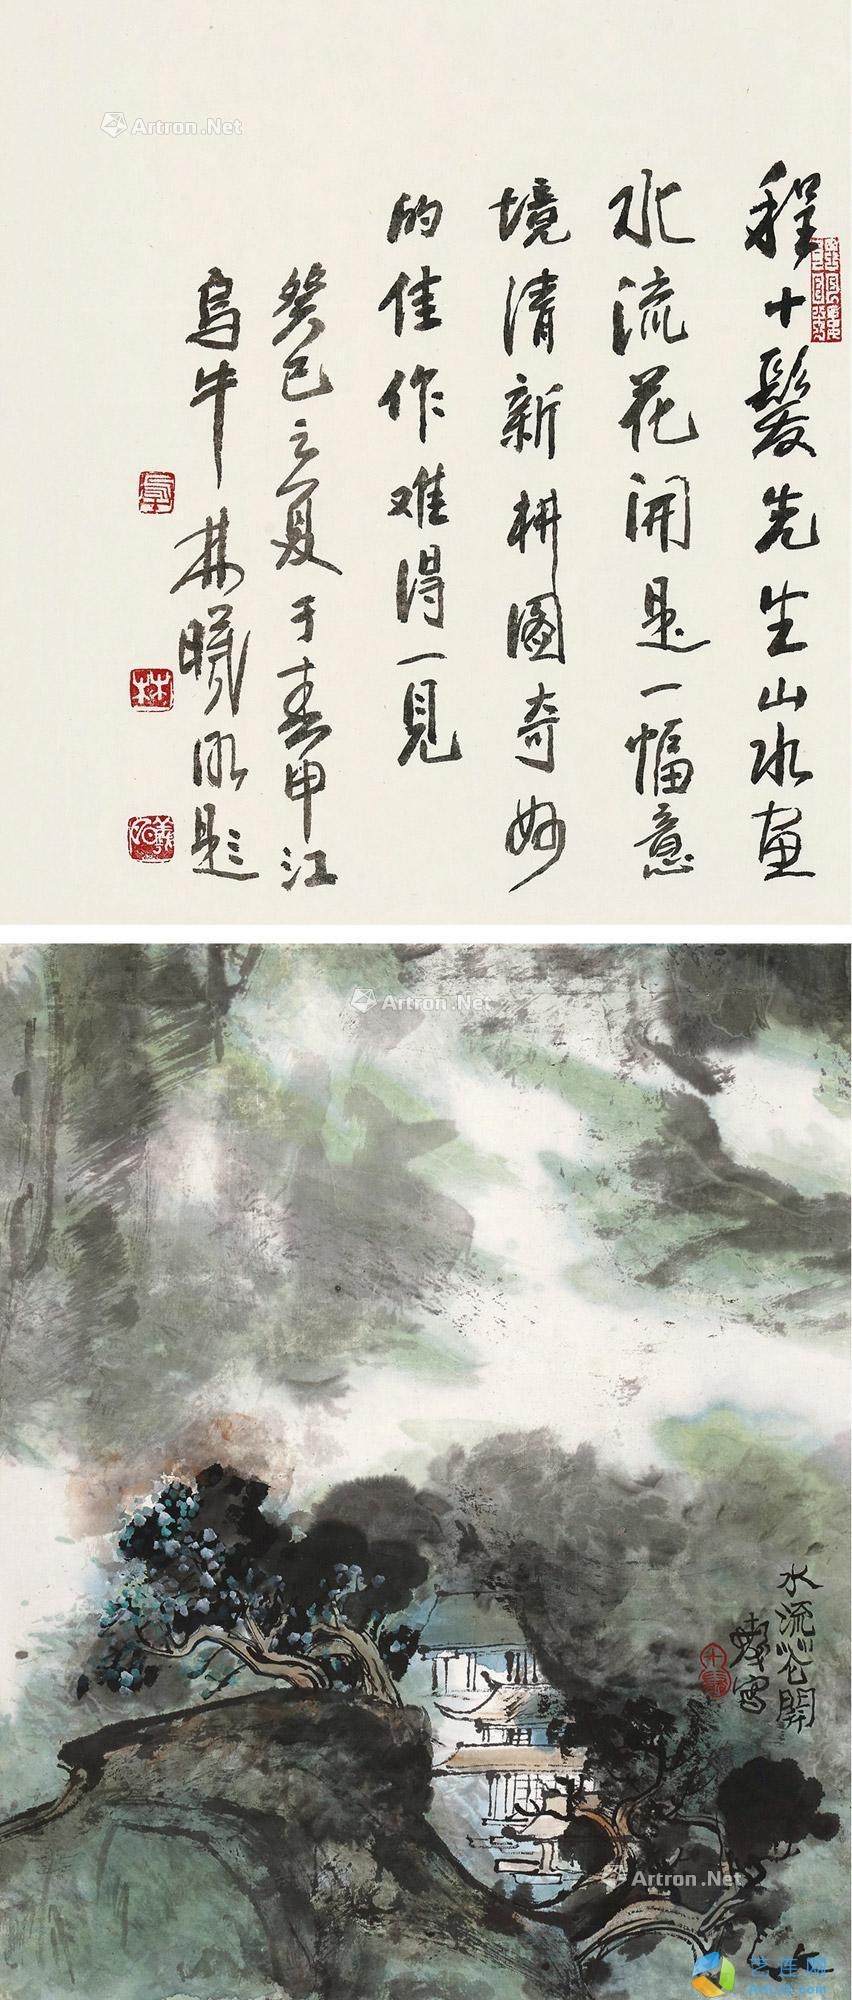 程十髮先生山水画
水流花开是一幅意
境清新构图奇妙
的佳作难得一见
癸巳立夏于春申江
乌牛林曦明题
林
水流花開
十髮寫
Artron.Net
Artron.Net
Artron.Net
艺连网